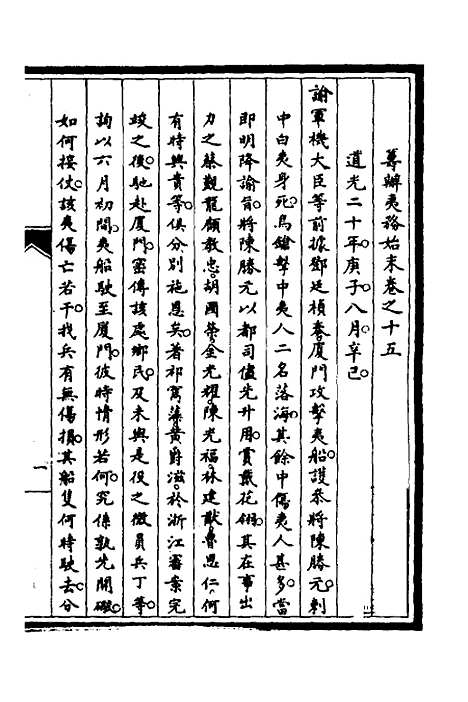 籌辦夷務始末卷之十五
道光二十年庚子八月辛巳。
諭軍機大臣等前據鄧廷楨奏。廈門攻擊夷船。護參將陳勝元。刺
中白夷身死。鳥鎗擊中夷人二名落海。其餘中傷夷人甚多。當
即明降諭旨。將陳勝元以都司儘先升用。賞戴花翎。其在事出
力之蔡觀龍。顧教忠。胡國榮。金光耀。陳光福。林建猷。曾思仁。何
有時興貴等。俱分別施恩矣。著祁寯藻。黃爵滋。於浙江審案完
竣之後。馳赴廈門。密傳該處鄉民。及未與是役之微員兵丁等。
詢以六月初間。夷船駛至廈門。彼時情形若何。究係孰先開礮。
如何接仗。該夷傷亡若干。我兵有無傷損。其船隻何時駛去。分
一